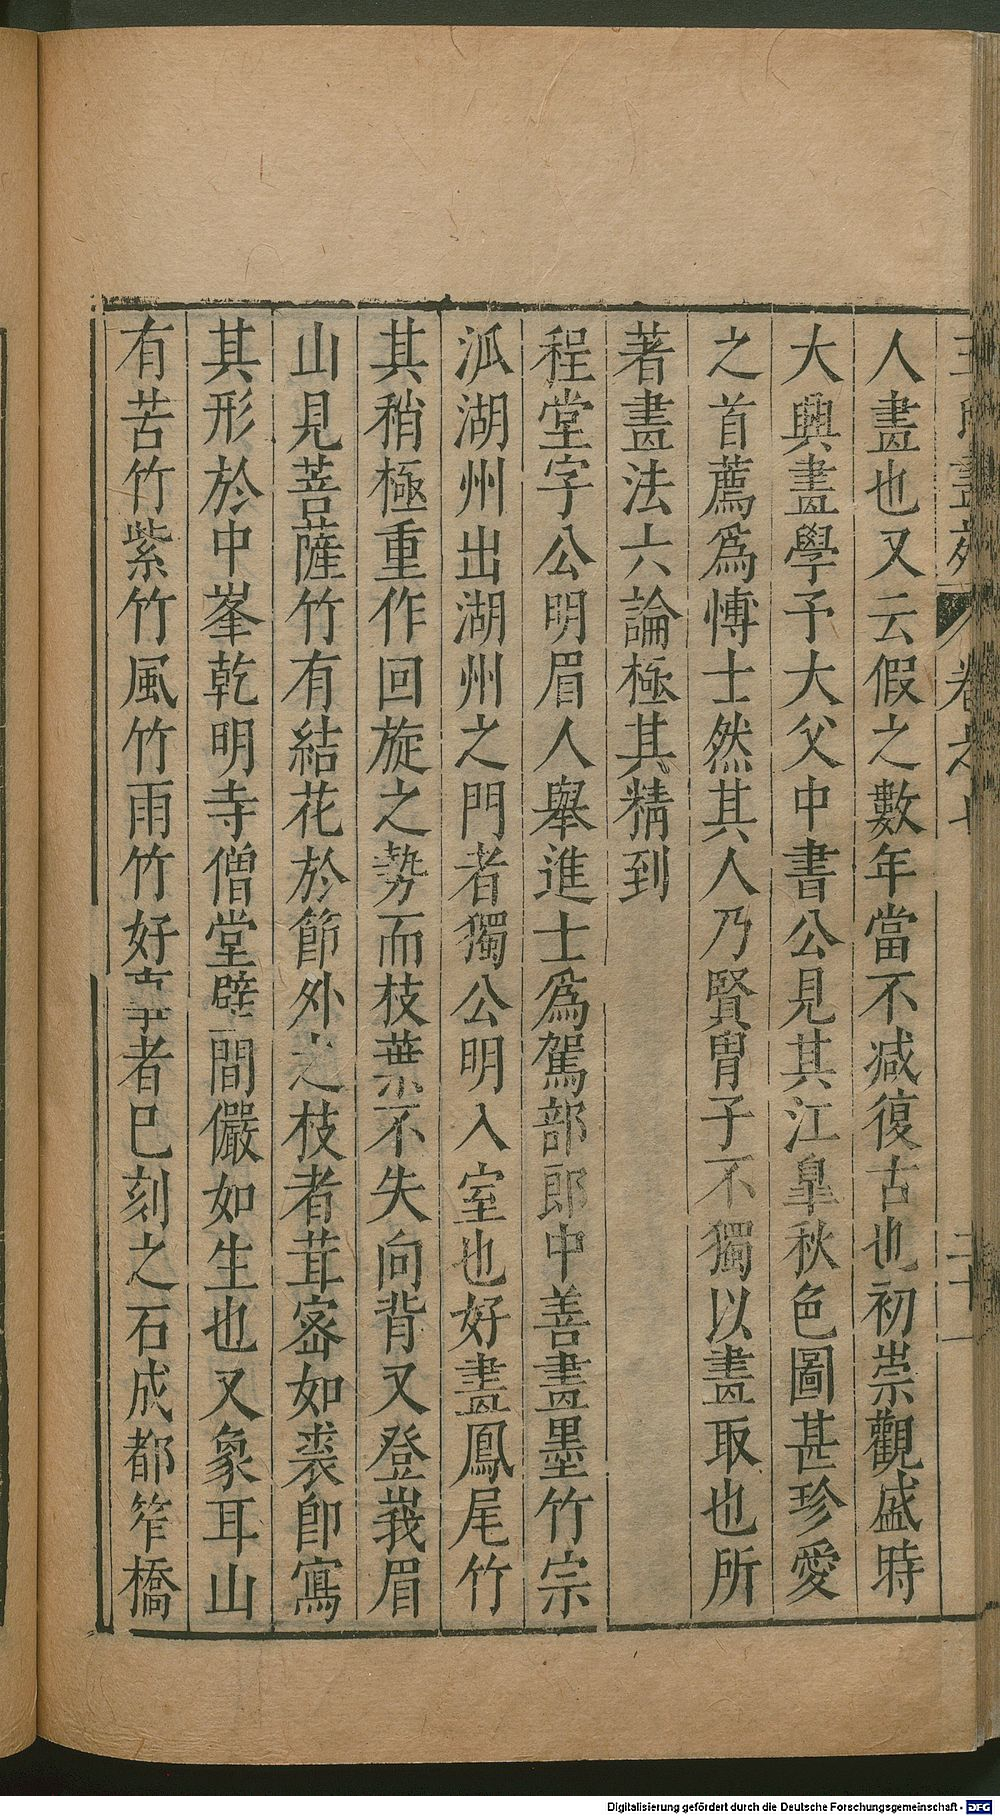 王氏畫苑 卷之七 二十一
人畫也又云假之數年當不减復古也初崇觀盛時
大興畫學予大父中書公見其江臯秋色圖甚珍愛
之首薦爲愽士然其人乃賢胄子不獨以畫取也所
著畫法六論極其精到
程堂字公明眉人舉進士爲駕部郎中善畫墨竹宗
派湖州出湖州之門者獨公明入室也好畫鳳尾竹
其稍極重作回旋之勢而枝葉不失向背又登峩眉
山見菩薩竹有結花於節外之枝者茸宻如裘卽寫
其形於中峯乾明寺僧堂壁間儼如生也又象耳山
有苦竹紫竹風竹雨竹好事者巳刻之石成都笮橋
Digitalisierung gefördert durch die Deutsche Forschungsgemeinschaft - DFG